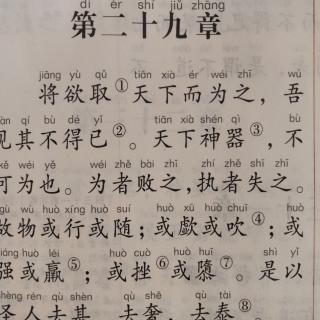 dì èr shí jiǔ zhāng
第二十九章
jiāng yù qǔ tiān xià ér wéi zhī wú
将欲取①天下而为之，吾
àn qí bù dé yǐ tiān xià shén qì bù
见其不得已②。天下神器③，不
kě wéi yě wéi zhě bài zhī zhí zhě shī zhī
可为也。为者败之，执者失之。
gù wù huò xíng huò suí huò xū huò chuī huò
故物或行或随；或歔或吹④；或
iáng huò léi huò cuò huò huī shì yǐ
强或羸⑤；或挫⑥或隳⑦。是以
shèng rén qù shèn qù shē qù tài
圣人去甚、去奢、去泰⑧。